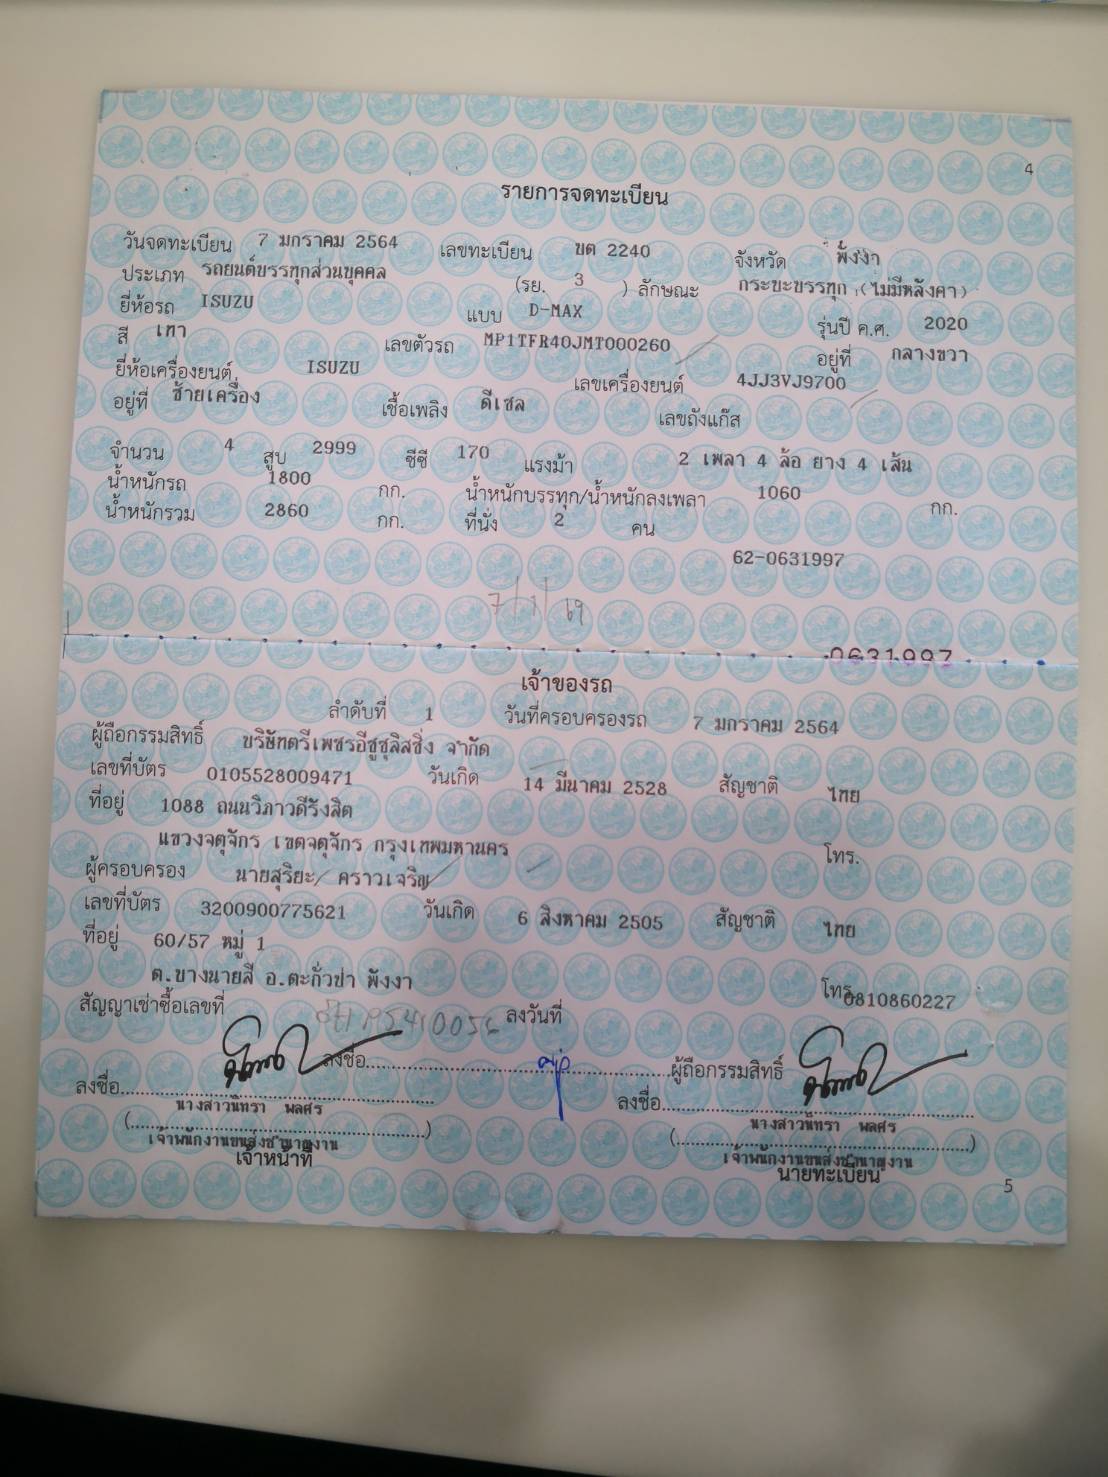 4
รายการจดทะเบียน
วันจดทะเบียน 7 มกราคม 2564 เลขทะเบียน บต 2240 จังหวัด พังงา
ประเภท รถยนต์บรรทุกส่วนบุคคล (รย. 3 ) ลักษณะ กระบะบรรทุก (ไม่มีหลังคา)
ยี่ห้อรถ ISUZU แบบ D-MAX รุ่นปี ค.ศ. 2020
สี เทา เลขตัวรถ MP1TFR40JMT000260 อยู่ที่ กลางขวา
ยี่ห้อเครื่องยนต์ ISUZU เลขเครื่องยนต์ 4JJ3VJ9700
อยู่ที่ ซ้ายเครื่อง เชื้อเพลิง ดีเซล เลขถังแก๊ส
จำนวน 4 สูบ 2999 ซีซี 170 แรงม้า 2 เพลา 4 ล้อ ยาง 4 เส้น
น้ำหนักรถ 1800 กก. น้ำหนักบรรทุก/น้ำหนักลงเพลา 1060 กก.
น้ำหนักรวม 2860 กก. ที่นั่ง 2 คน
62-0631997
7/1/69
0631997
เจ้าของรถ
ลำดับที่ 1 วันที่ครอบครองรถ 7 มกราคม 2564
ผู้ถือกรรมสิทธิ์ บริษัทตรีเพชรอีซูซุลิสซิ่ง จำกัด
เลขที่บัตร 0105528009471 วันเกิด 14 มีนาคม 2528 สัญชาติ ไทย
ที่อยู่ 1088 ถนนวิภาวดีรังสิต
แขวงจตุจักร เขตจตุจักร กรุงเทพมหานคร โทร.
ผู้ครอบครอง นายสุริยะ คราวเจริญ
เลขที่บัตร 3200900775621 วันเกิด 6 สิงหาคม 2505 สัญชาติ ไทย
ที่อยู่ 60/57 หมู่ 1
ต.บางนายสี อ.ตะกั่วป่า พังงา โทร. 0810860227
สัญญาเช่าซื้อเลขที่ ลงวันที่
ลงชื่อ ผู้ถือกรรมสิทธิ์
ลงชื่อ ลงชื่อ
นางสาวนิทรา พลศร นางสาวนิทรา พลศร
เจ้าพนักงานขนส่งชำนาญงาน เจ้าพนักงานขนส่งชำนาญงาน
เจ้าหน้าที่ นายทะเบียน
5